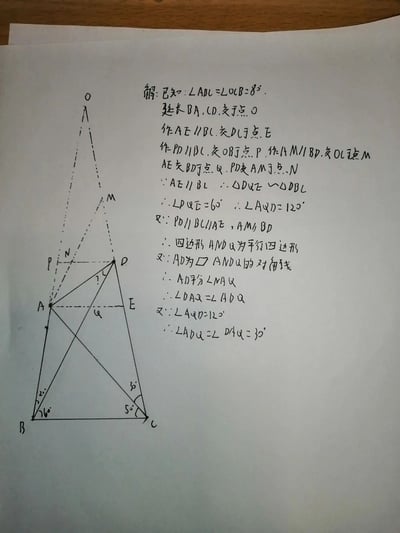 解: 已知: ∠ABC=∠OCB=80°.
延长BA、CD、交于点O
作AE∥BC 交DC于点E
作PD∥BC、交OB于点P、作AM∥BD、交OC于点M
AE交BD于点Q、PD交AM于点、N
∵AE∥BC ∴△DQE∽△DBC
∴∠DQE=60° ∴∠AQD=120°
又∵PD∥BC∥AE,AM∥BD
∴四边形ANDQ为平行四边形
又∵AD为▱ANDQ的对角线
∴AD平分∠NAQ
∴∠DAQ=∠ADQ
又∵∠AQD=120°
∴∠ADQ=∠DAQ=30°
O
M
P
N
D
?
A
E
Q
20°
60°
30°
50°
B
C